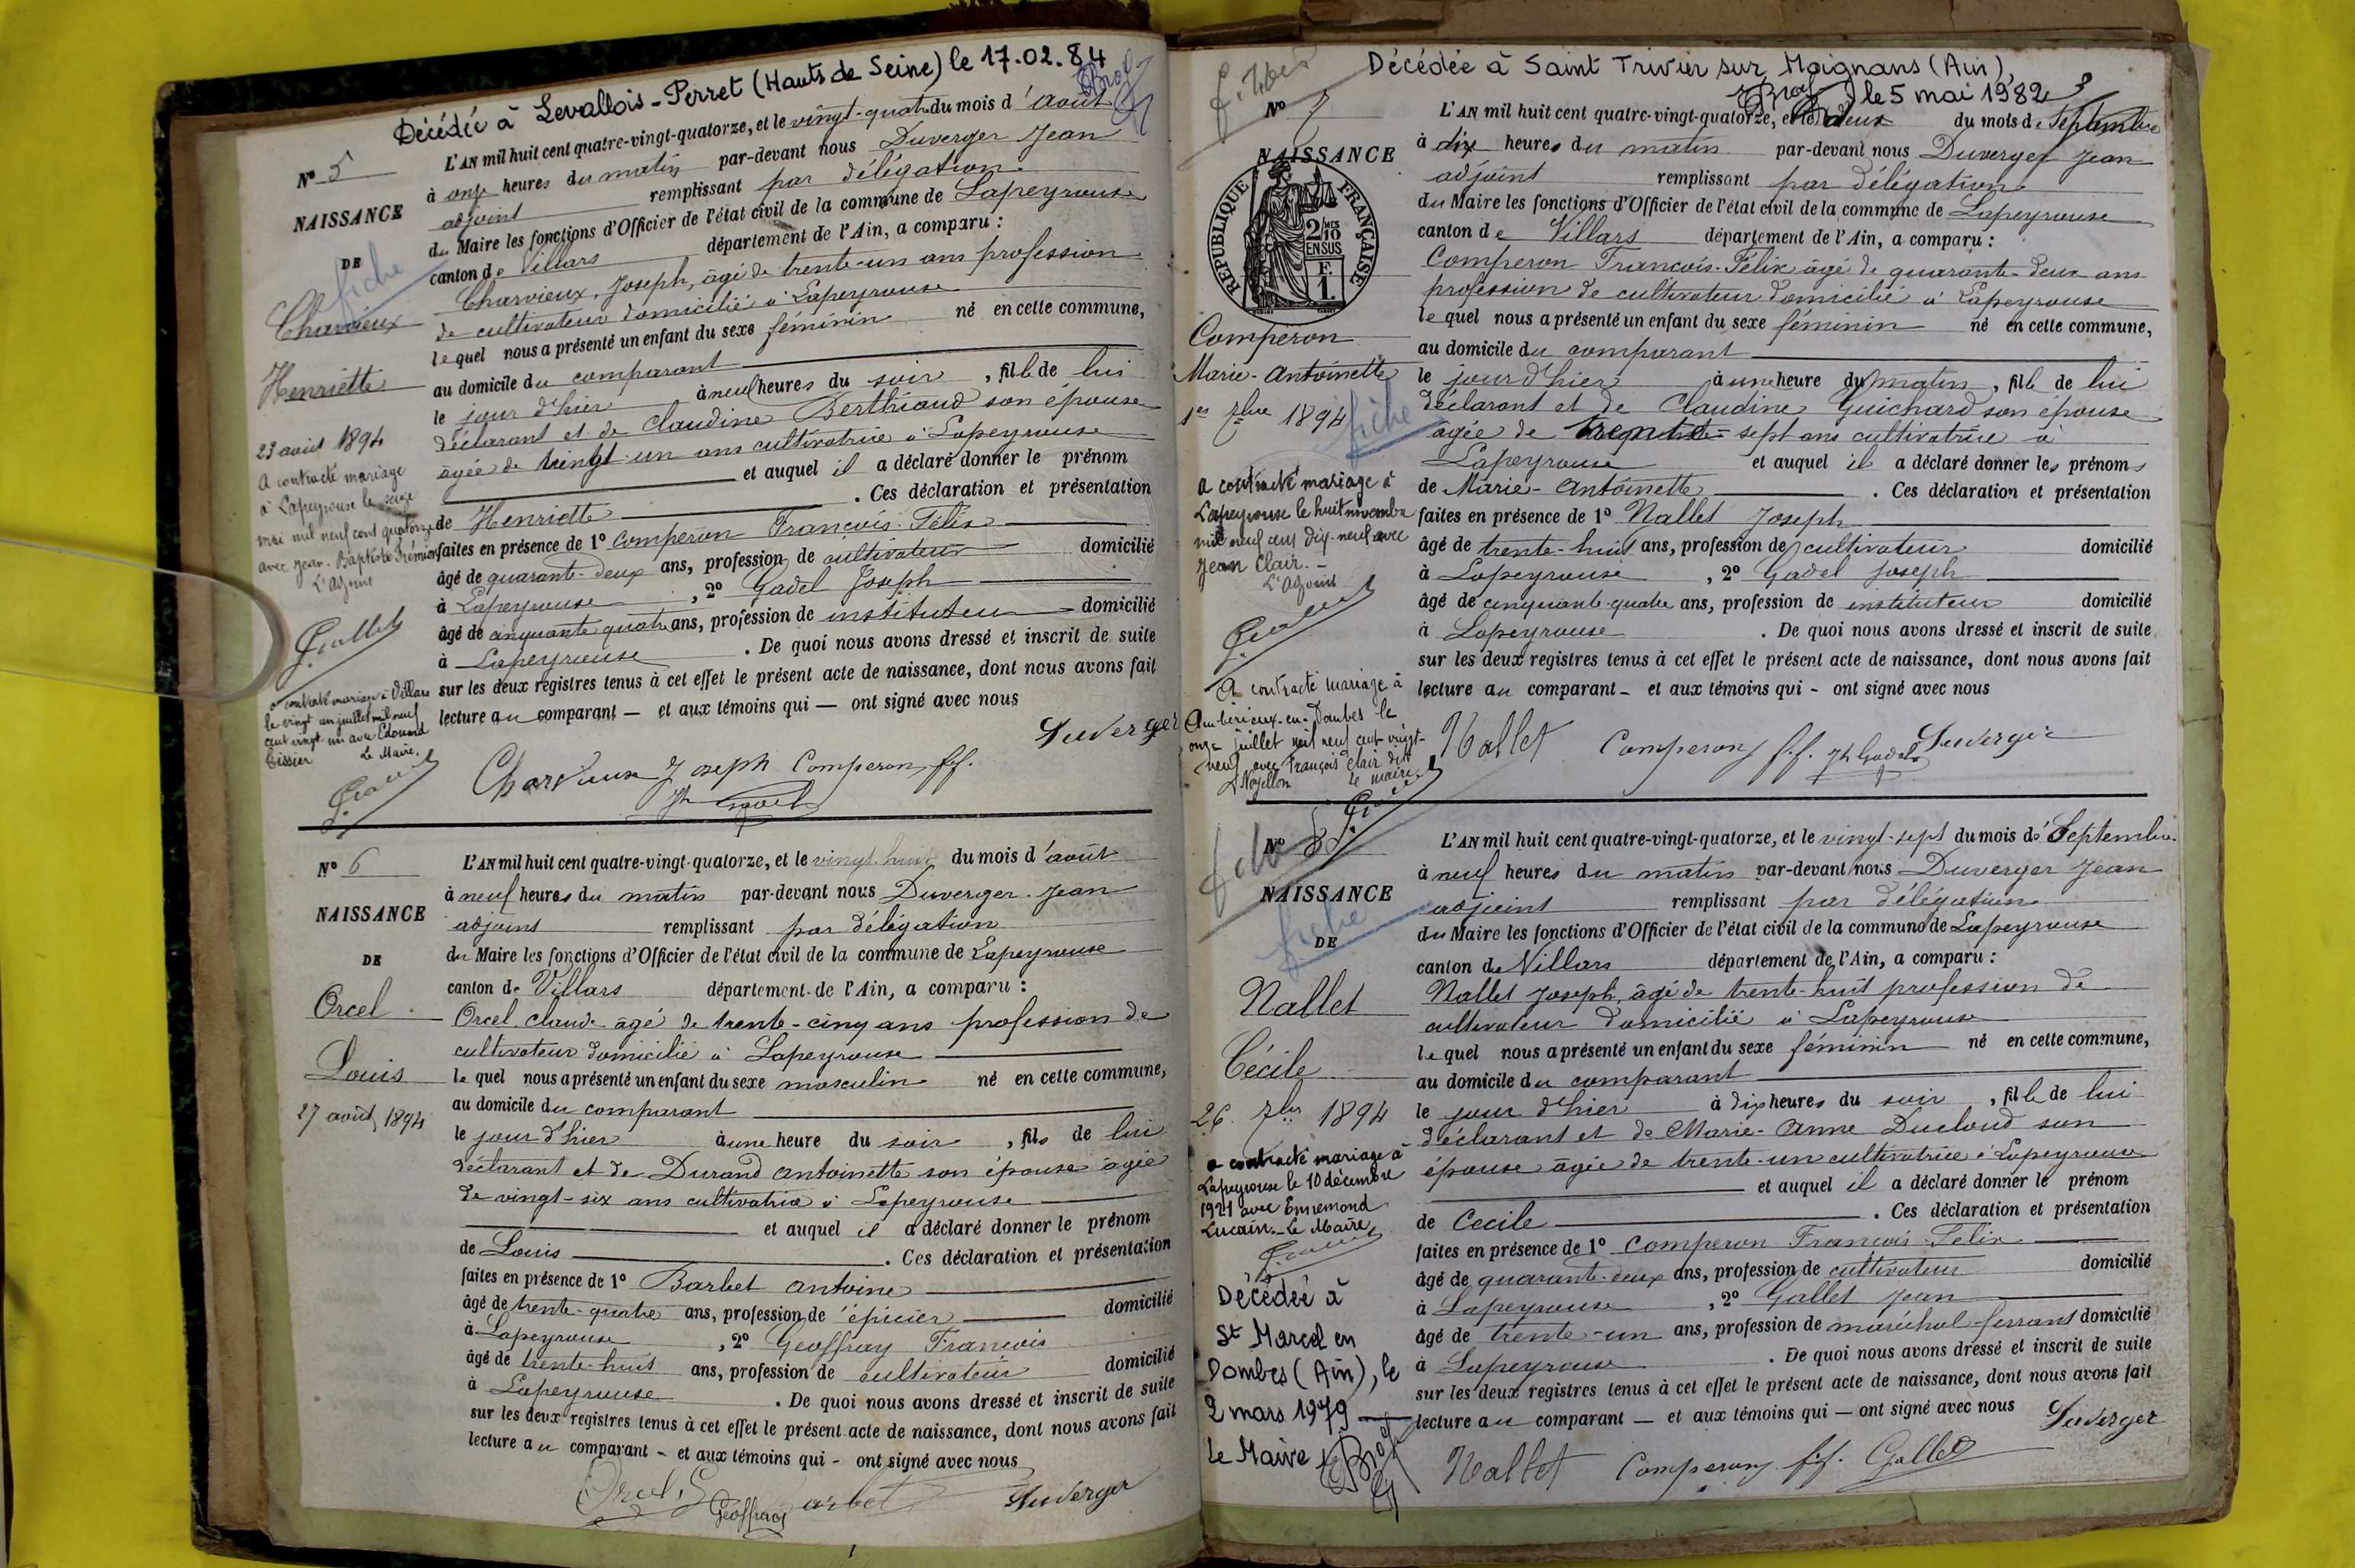 Décédée à Levallois-Perret (Hauts de Seine) le 17.02.84
N° 5
NAISSANCE
DE
fiche
Charvieux
Henriette
23 août 1894
A contracté mariage
à Lapeyrouse le seize
mai mil neuf cent quatorze
avec Jean-Baptiste Frémion
L'Adjoint
a contracté mariage à Villars
le vingt un juillet mil neuf
cent vingt un avec Edouard
Cissier Le Maire,
L'AN mil huit cent quatre-vingt-quatorze, et le vingt-quatre du mois d'août
à onze heures du matin par-devant nous Duverger Jean
adjoint remplissant par délégation
du Maire les fonctions d'Officier de l'état civil de la commune de Lapeyrouse
canton de Villars département de l'Ain, a comparu :
Charvieux, Joseph, âgé de trente-un ans profession
de cultivateur domicilié à Lapeyrouse
lequel nous a présenté un enfant du sexe féminin né en cette commune,
au domicile du comparant
le jour d'hier à neuf heures du soir, fille de lui
déclarant et de Claudine Berthiaud son épouse
âgée de vingt-un ans cultivatrice à Lapeyrouse
et auquel il a déclaré donner le prénom
de Henriette . Ces déclaration et présentation
faites en présence de 1° Comperon François-Félix
âgé de quarante-deux ans, profession de cultivateur domicilié
à Lapeyrouse , 2° Gadel Joseph
âgé de cinquante quatre ans, profession de instituteur domicilié
à Lapeyrouse . De quoi nous avons dressé et inscrit de suite
sur les deux registres tenus à cet effet le présent acte de naissance, dont nous avons fait
lecture au comparant — et aux témoins qui — ont signé avec nous
Duverger
Charvieux Joseph Comperon f.f.
N° 6
NAISSANCE
DE
Orcel
Louis
27 août 1894
L'AN mil huit cent quatre-vingt-quatorze, et le vingt-huit du mois d'août
à neuf heures du matin par-devant nous Duverger Jean
adjoint remplissant par délégation
du Maire les fonctions d'Officier de l'état civil de la commune de Lapeyrouse
canton de Villars département de l'Ain, a comparu :
Orcel Claude âgé de trente-cinq ans profession de
cultivateur domicilié à Lapeyrouse
lequel nous a présenté un enfant du sexe masculin né en cette commune,
au domicile du comparant
le jour d'hier à une heure du soir, fils de lui
déclarant et de Durand Antoinette son épouse âgée
de vingt-six ans cultivatrice à Lapeyrouse
et auquel il a déclaré donner le prénom
de Louis . Ces déclaration et présentation
faites en présence de 1° Barbet Antoine
âgé de trente-quatre ans, profession de épicier domicilié
à Lapeyrouse , 2° Geoffray François
âgé de trente-huit ans, profession de cultivateur domicilié
à Lapeyrouse . De quoi nous avons dressé et inscrit de suite
sur les deux registres tenus à cet effet le présent acte de naissance, dont nous avons fait
lecture au comparant - et aux témoins qui - ont signé avec nous
Orcel Geoffray Barbet Duverger
Décédée à Saint Trivier sur Moignans (Ain),
le 5 mai 1982
N° 7
NAISSANCE
REPUBLIQUE FRANÇAISE
2/10 EN SUS
F. 1.
Comperon
Marie-Antoinette
1er 7bre 1894
fiche
a contracté mariage à
Lapeyrouse le huit novembre
mil neuf cent dix-neuf avec
Jean Clair.-
L'Adjoint
A contracté mariage à
Ambérieux-en-Dombes le
onze juillet mil neuf cent vingt-
neuf avec François Clair dit
Le maire,
L'AN mil huit cent quatre-vingt-quatorze, et le deux du mois de Septembre
à dix heures du matin par-devant nous Duverger Jean
adjoint remplissant par délégation
du Maire les fonctions d'Officier de l'état civil de la commune de Lapeyrouse
canton de Villars département de l'Ain, a comparu :
Comperon François-Félix âgé de quarante-deux ans
profession de cultivateur domicilié à Lapeyrouse
lequel nous a présenté un enfant du sexe féminin né en cette commune,
au domicile du comparant
le jour d'hier à une heure du matin, fille de lui
déclarant et de Claudine Guichard son épouse
âgée de trente-sept ans cultivatrice à
Lapeyrouse et auquel il a déclaré donner les prénoms
de Marie-Antoinette . Ces déclaration et présentation
faites en présence de 1° Nallet Joseph
âgé de trente-huit ans, profession de cultivateur domicilié
à Lapeyrouse , 2° Gadel Joseph
âgé de cinquante-quatre ans, profession de instituteur domicilié
à Lapeyrouse . De quoi nous avons dressé et inscrit de suite
sur les deux registres tenus à cet effet le présent acte de naissance, dont nous avons fait
lecture au comparant - et aux témoins qui - ont signé avec nous
Nallet Comperon f.f. Jh Gadel Duverger
N° 8
NAISSANCE
DE
fiche
Nallet
Cécile
26 7bre 1894
a contracté mariage à
Lapeyrouse le 10 décembre
1921 avec Ennemond
Lucain.- Le Maire
Décédée à
St Marcel en
Dombes (Ain), le
2 mars 1979
Le Maire
L'AN mil huit cent quatre-vingt-quatorze, et le vingt-sept du mois de Septembre
à neuf heures du matin par-devant nous Duverger Jean
adjoint remplissant par délégation
du Maire les fonctions d'Officier de l'état civil de la commune de Lapeyrouse
canton de Villars département de l'Ain, a comparu :
Nallet Joseph, âgé de trente-huit profession de
cultivateur domicilié à Lapeyrouse
lequel nous a présenté un enfant du sexe féminin né en cette commune,
au domicile du comparant
le jour d'hier à dix heures du soir, fille de lui
déclarant et de Marie-Anne Ducloud son
épouse âgée de trente-un cultivatrice à Lapeyrouse
et auquel il a déclaré donner le prénom
de Cécile . Ces déclaration et présentation
faites en présence de 1° Comperon François-Félix
âgé de quarante-deux ans, profession de cultivateur domicilié
à Lapeyrouse , 2° Gallet Jean
âgé de trente-un ans, profession de maréchal-ferrant domicilié
à Lapeyrouse . De quoi nous avons dressé et inscrit de suite
sur les deux registres tenus à cet effet le présent acte de naissance, dont nous avons fait
lecture au comparant — et aux témoins qui — ont signé avec nous
Duverger
Nallet Comperon f.f. Gallet